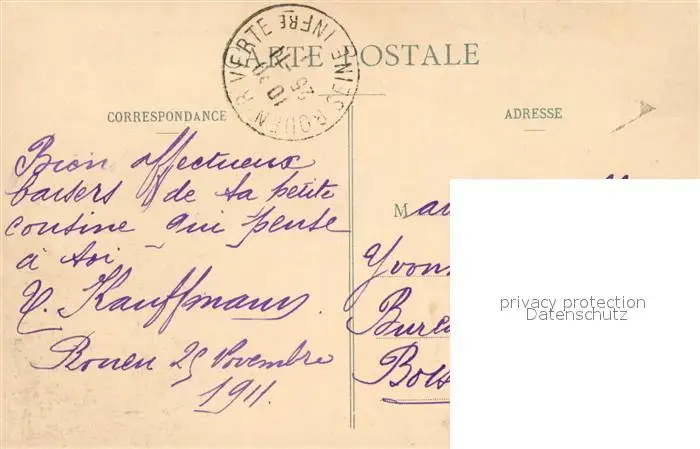 CARTE POSTALE
ROUEN R. VERTE
SEINE INFRE
10 30
25
CORRESPONDANCE
ADRESSE
Bien affectueux
baisers de ta petite
cousine qui pense
à toi
Kauffmann
Rouen 25 Novembre
1911
M
Yvon
Bure
privacy protection
Datenschutz